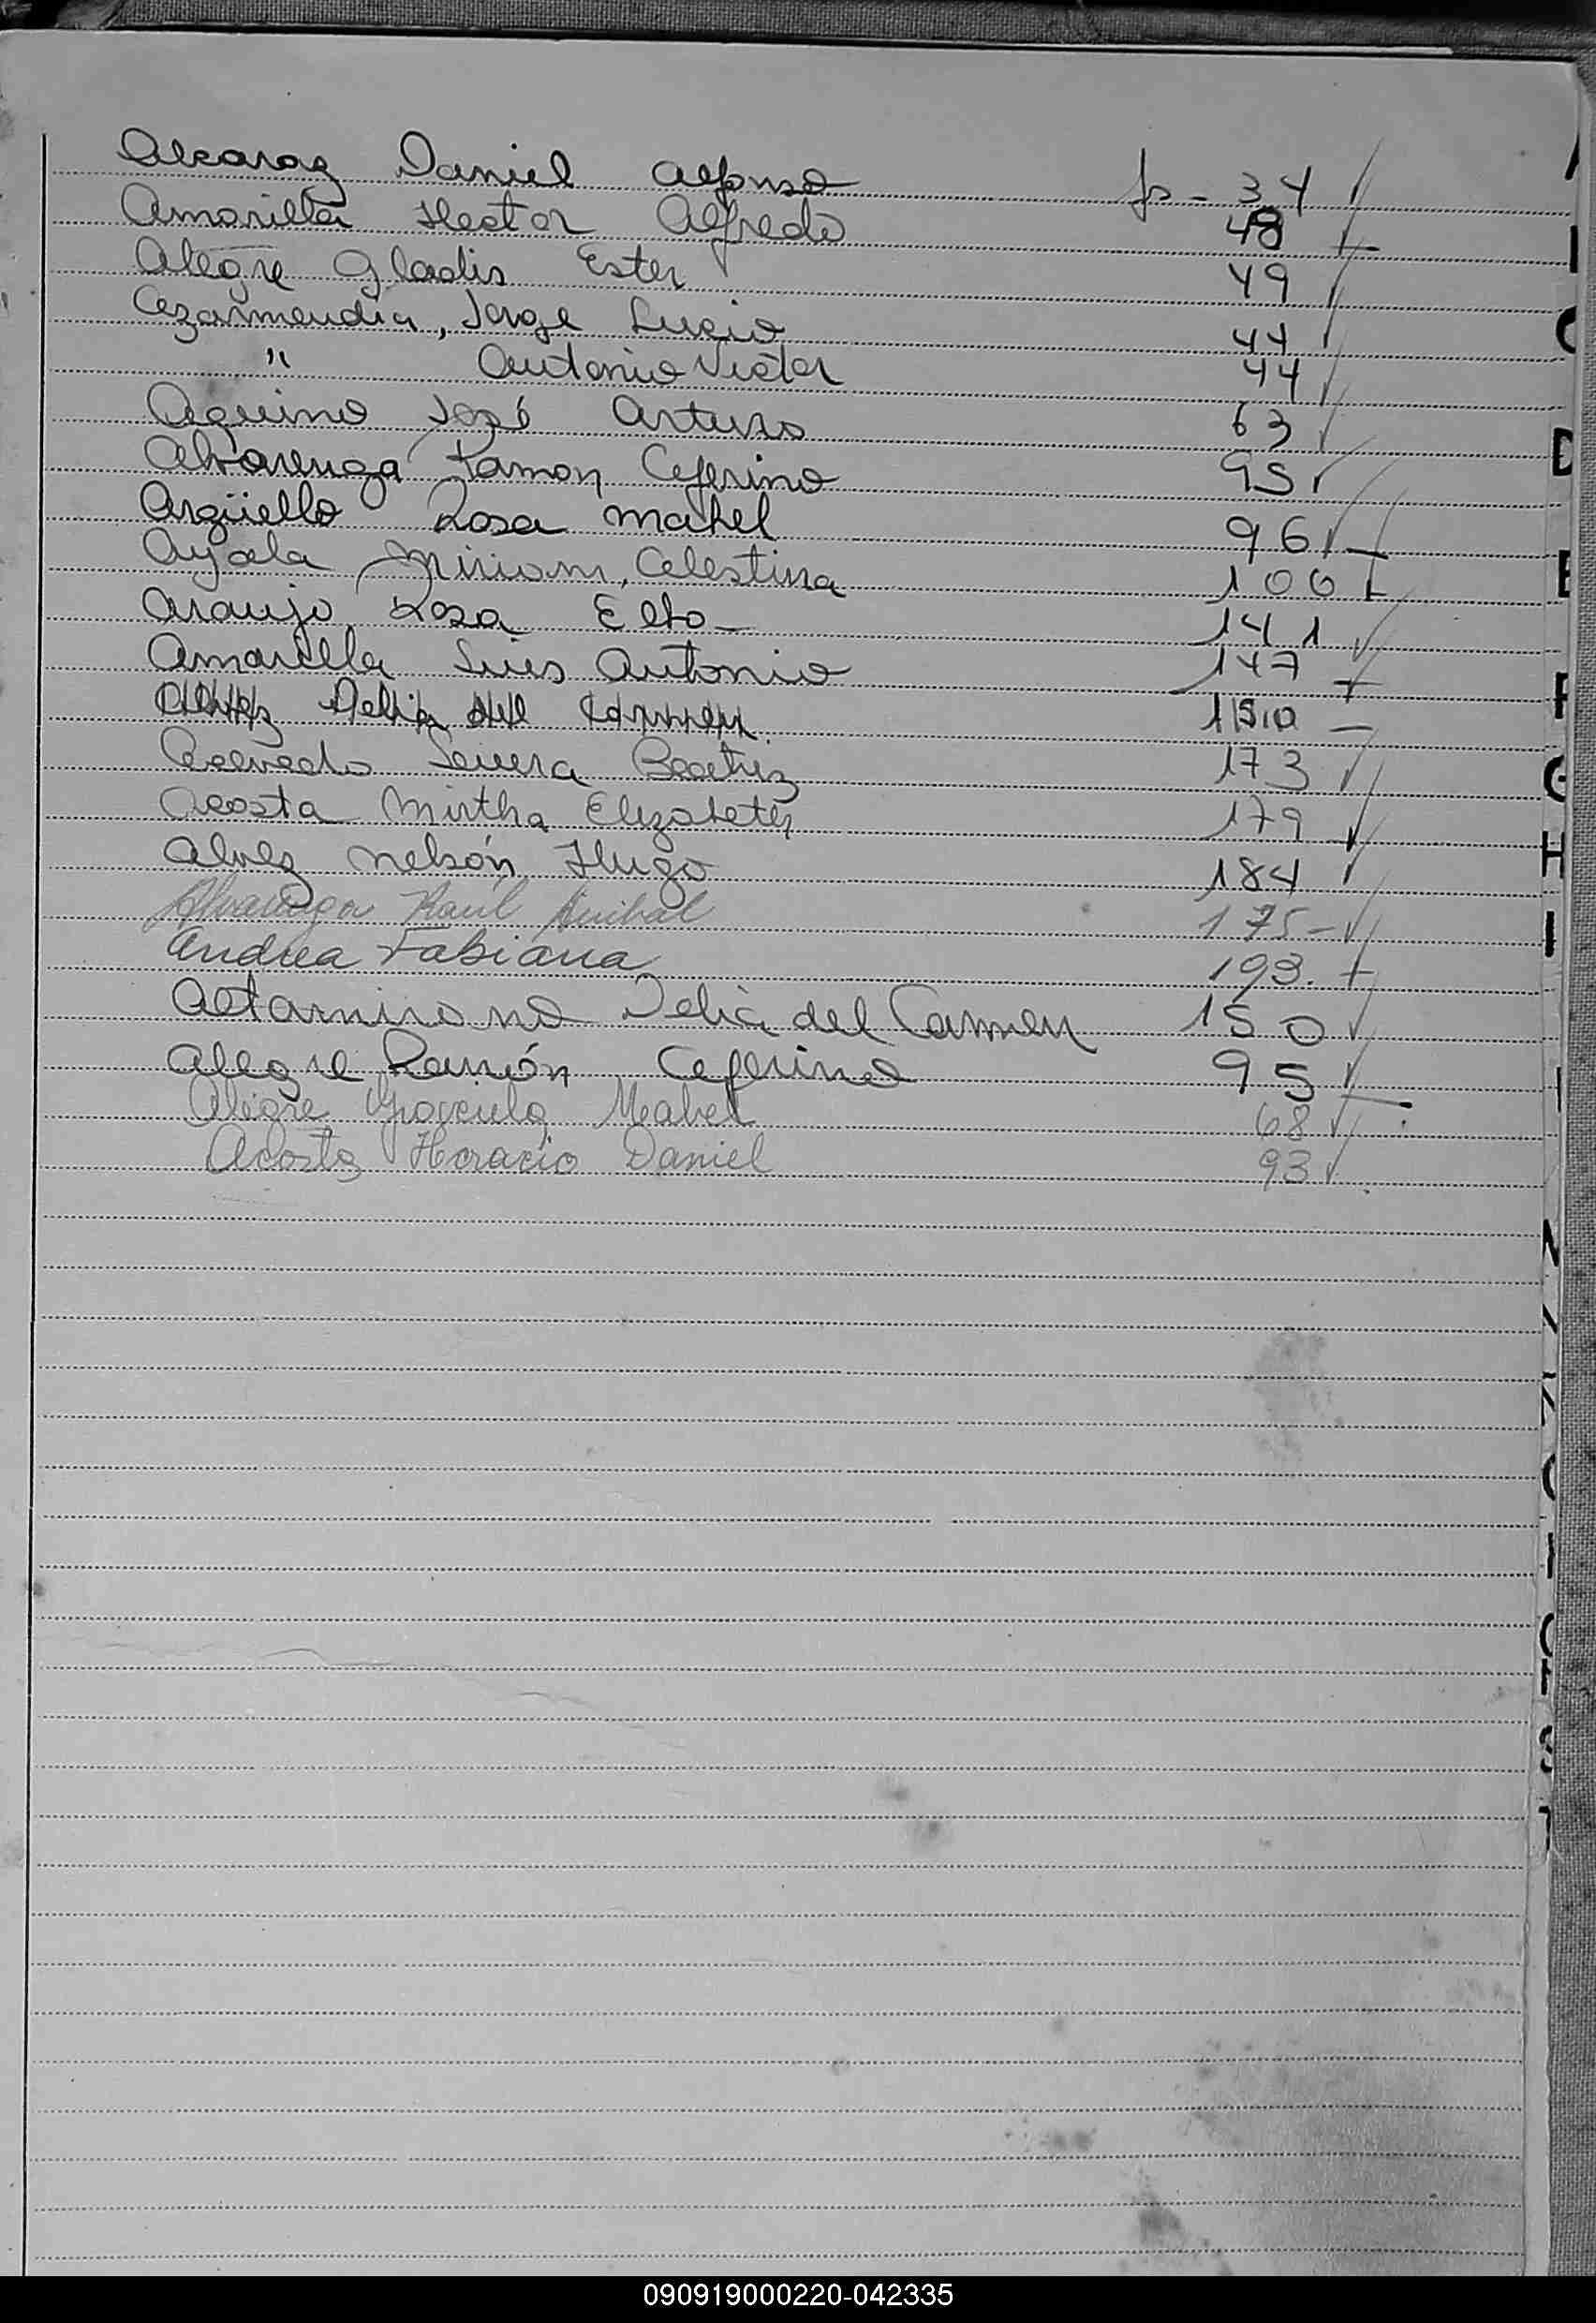 Alcaraz Daniel Alfonso fs - 34
Amarilla Hector Alfredo 48
Alegre Gladis Ester 49
Azarmendia, Jorge Lucio 44
" Antonio Victor 44
Aquino José Arturo 63
Alvarenga Ramon Ceferino 95
Argüello Rosa Mabel 96
Ayala Miriam, Celestina 100
Araujo Rosa Elba 141
Amarilla Luis Antonio 147
Delia del Carmen 150
Acevedo Severa Beatriz 173
Acosta Mirtha Elizabeth 179
Alvez Nelsón Hugo 184
Alvarenga Raúl Anibal 175-
Andrea Fabiana 193.
Altamirano Delia del Carmen 150
Alegre Ramón Ceferino 95
Alegre Graciela Mabel 68
Acosta Horacio Daniel 93
A
D
E
F
G
H
I
S
T
090919000220-042335